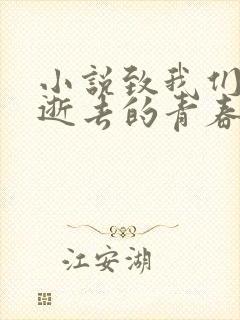 小说致我们
逝去的青春
江安湖